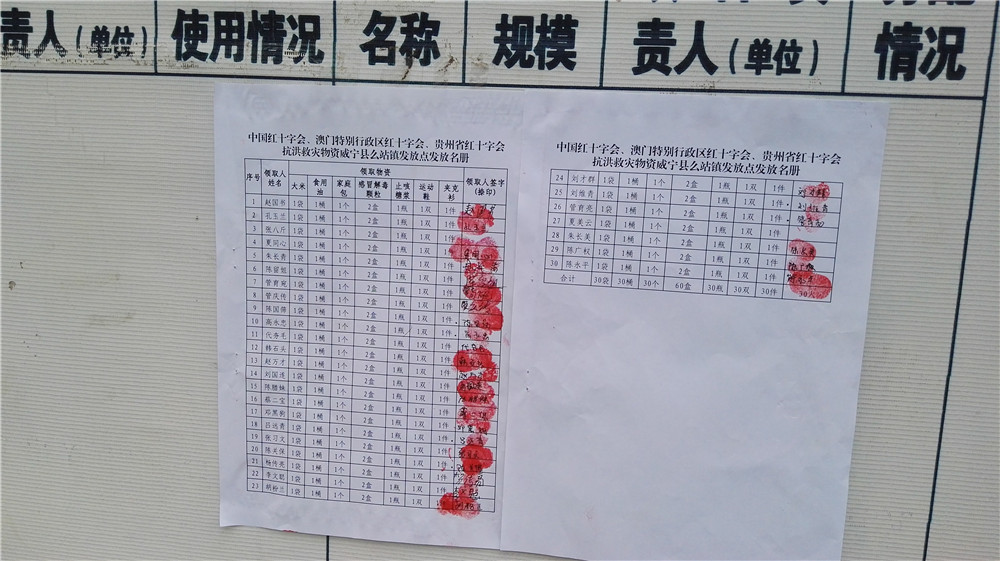 责人（单位） 使用情况 名称 规模 责人（单位） 情况
中国红十字会、澳门特别行政区红十字会、贵州省红十字会
抗洪救灾物资威宁县么站镇发放点发放名册
序号 领取人姓名 领取物资 领取人签字（捺印）
大米 食用油 家庭包 感冒解毒颗粒 止咳糖浆 运动鞋 夹克衫
1 赵国书 1袋 1桶 1个 2盒 1瓶 1双 1件
2 孔玉兰 1袋 1桶 1个 2盒 1瓶 1双 1件
3 张八斤 1袋 1桶 1个 2盒 1瓶 1双 1件
4 夏同心 1袋 1桶 1个 2盒 1瓶 1双 1件
5 朱长青 1袋 1桶 1个 2盒 1瓶 1双 1件
6 陈留姐 1袋 1桶 1个 2盒 1瓶 1双 1件
7 管育宛 1袋 1桶 1个 2盒 1瓶 1双 1件
8 管庆传 1袋 1桶 1个 2盒 1瓶 1双 1件
9 陈国蓓 1袋 1桶 1个 2盒 1瓶 1双 1件
10 高永忠 1袋 1桶 1个 2盒 1瓶 1双 1件
11 代务毛 1袋 1桶 1个 2盒 1瓶 1双 1件
12 韩石头 1袋 1桶 1个 2盒 1瓶 1双 1件
13 赵万才 1袋 1桶 1个 2盒 1瓶 1双 1件
14 刘国连 1袋 1桶 1个 2盒 1瓶 1双 1件
15 陈腊妹 1袋 1桶 1个 2盒 1瓶 1双 1件
16 蔡二宝 1袋 1桶 1个 2盒 1瓶 1双 1件
17 邓黑狗 1袋 1桶 1个 2盒 1瓶 1双 1件
18 吕远青 1袋 1桶 1个 2盒 1瓶 1双 1件
19 张习文 1袋 1桶 1个 2盒 1瓶 1双 1件
20 陈关保 1袋 1桶 1个 2盒 1瓶 1双 1件
21 杨传亮 1袋 1桶 1个 2盒 1瓶 1双 1件
22 李文聪 1袋 1桶 1个 2盒 1瓶 1双 1件
23 胡粉兰 1袋 1桶 1个 2盒 1瓶 1双
中国红十字会、澳门特别行政区红十字会、贵州省红十字会
抗洪救灾物资威宁县么站镇发放点发放名册
24 刘才群 1袋 1桶 1个 2盒 1瓶 1双 1件 刘才群
25 刘维青 1袋 1桶 1个 2盒 1瓶 1双 1件 刘维青
26 管育亮 1袋 1桶 1个 2盒 1瓶 1双 1件
27 夏美云 1袋 1桶 1个 2盒 1瓶 1双 1件
28 朱长美 1袋 1桶 1个 2盒 1瓶 1双 1件
29 陈广权 1袋 1桶 1个 2盒 1瓶 1双 1件
30 陈永平 1袋 1桶 1个 2盒 1瓶 1双 1件
合计 30袋 30桶 30个 60盒 30瓶 30双 30件 30人